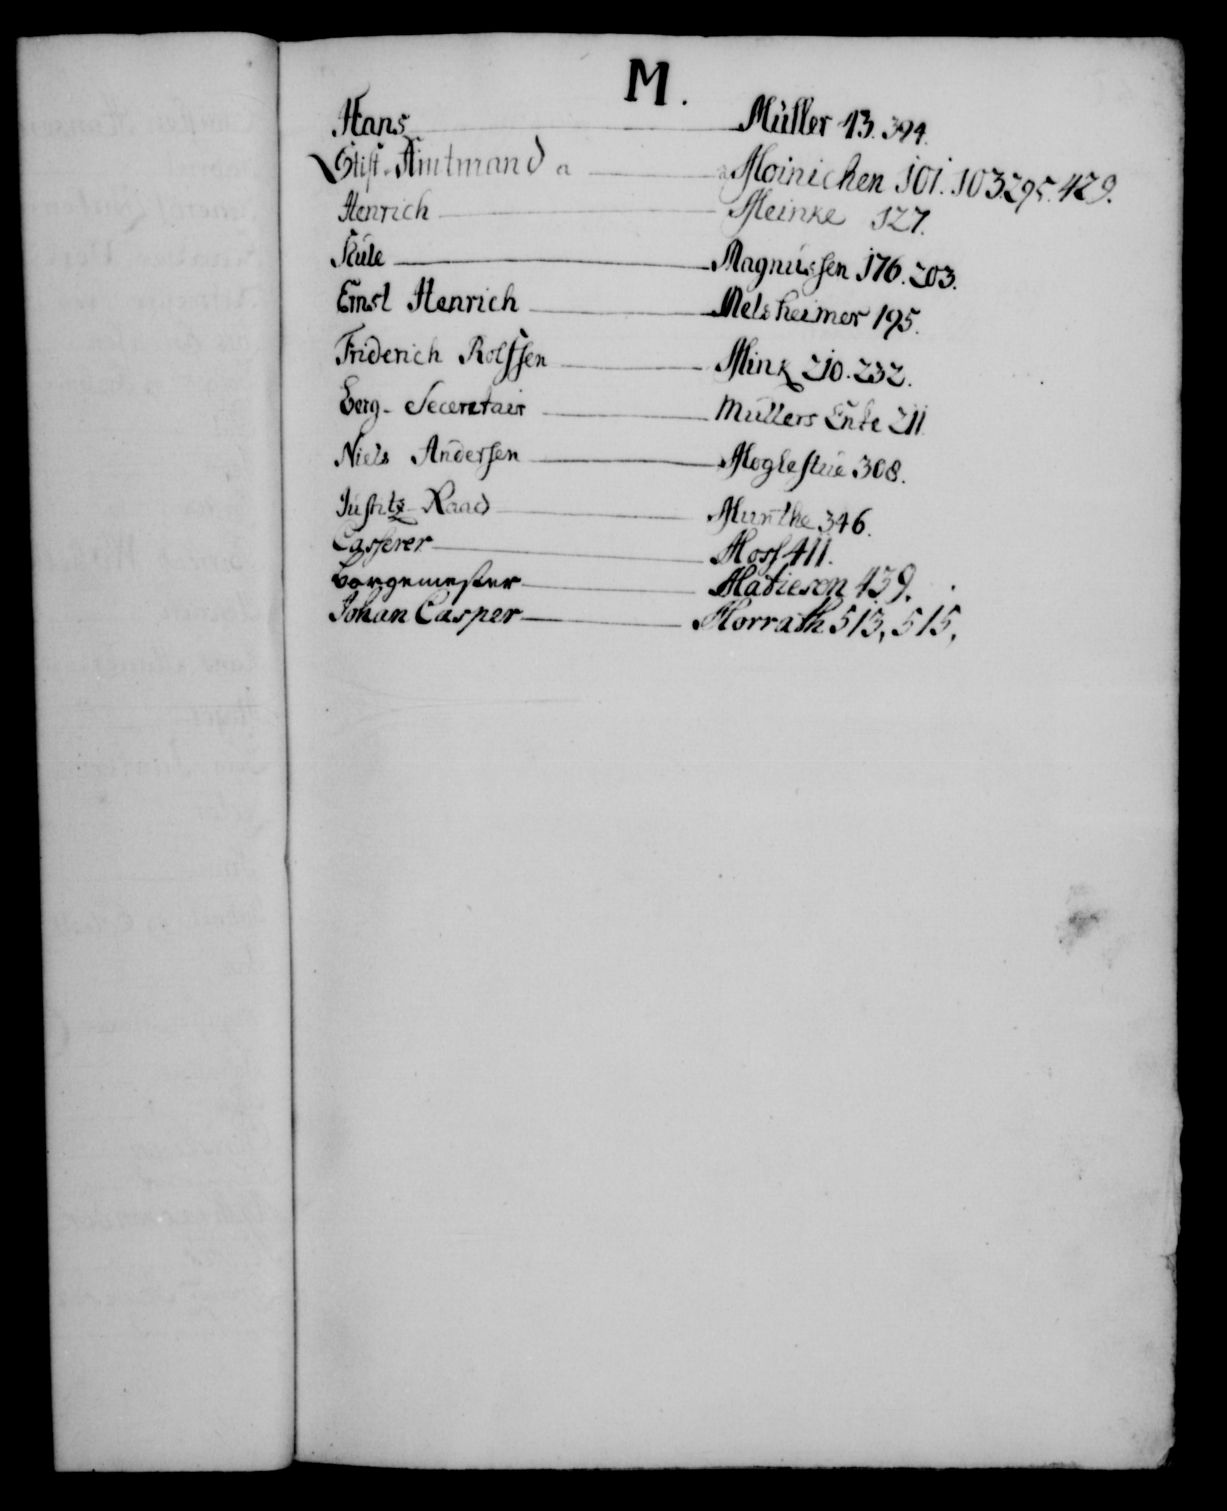 M.
Hans Müller 13. 394.
Stift-Amtmand a Moinichen 101. 103 295. 429.
Henrich Meinke 127.
Skule Magnussen 176. 203.
Ernst Henrich Melsheimer 195.
Friderich Rolfssen Mink 210. 232.
Berg-Seceretair Müllers Enke 211
Niels Andersen Moglestue 308.
Justitz-Raad Munthe 346.
Casserer Moss 411.
Borgemester Matieson 459.
Johan Casper Morrath 513, 515,